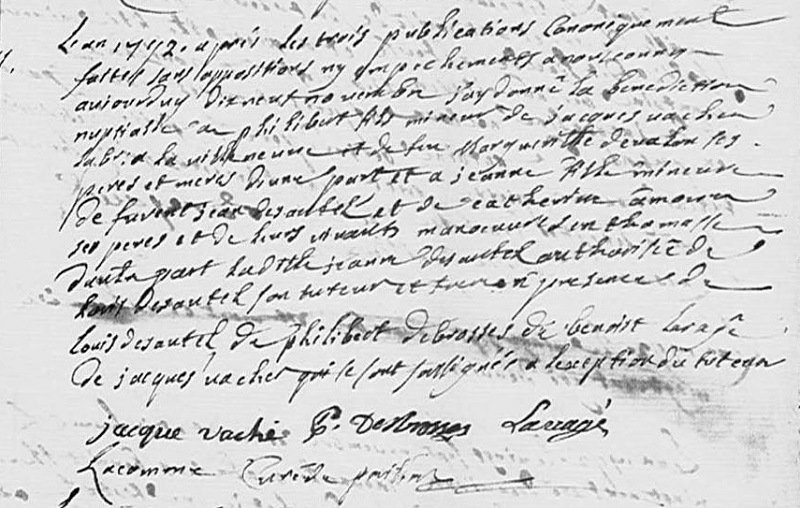 L'an 1792. après les trois publications Canoniquement
faittes sans oppositions ny empechements a nous connu
aujourduy dix neuf novembre j'ay donné la benediction
nuptialle a philibert fils mineur de jacques vacher
a la villeneuve et de feu Margueritte devalon ses
peres et meres d'une part et a jeanne fille mineure
de furent jean desautel et de catherine amour
ses peres et de leurs vivants manoeuvres en thomasse
d'autre part laditte jeanne desautel authorisée de
Louis Desautel son tuteur et en presence de
louis desautel de philibert debrosses de benoist Laragé
de jacques vacher qui se sont soussignés a l'exception du tuteur
jacque vaché P. Desbrosses Laragé
Lacomme Curé de